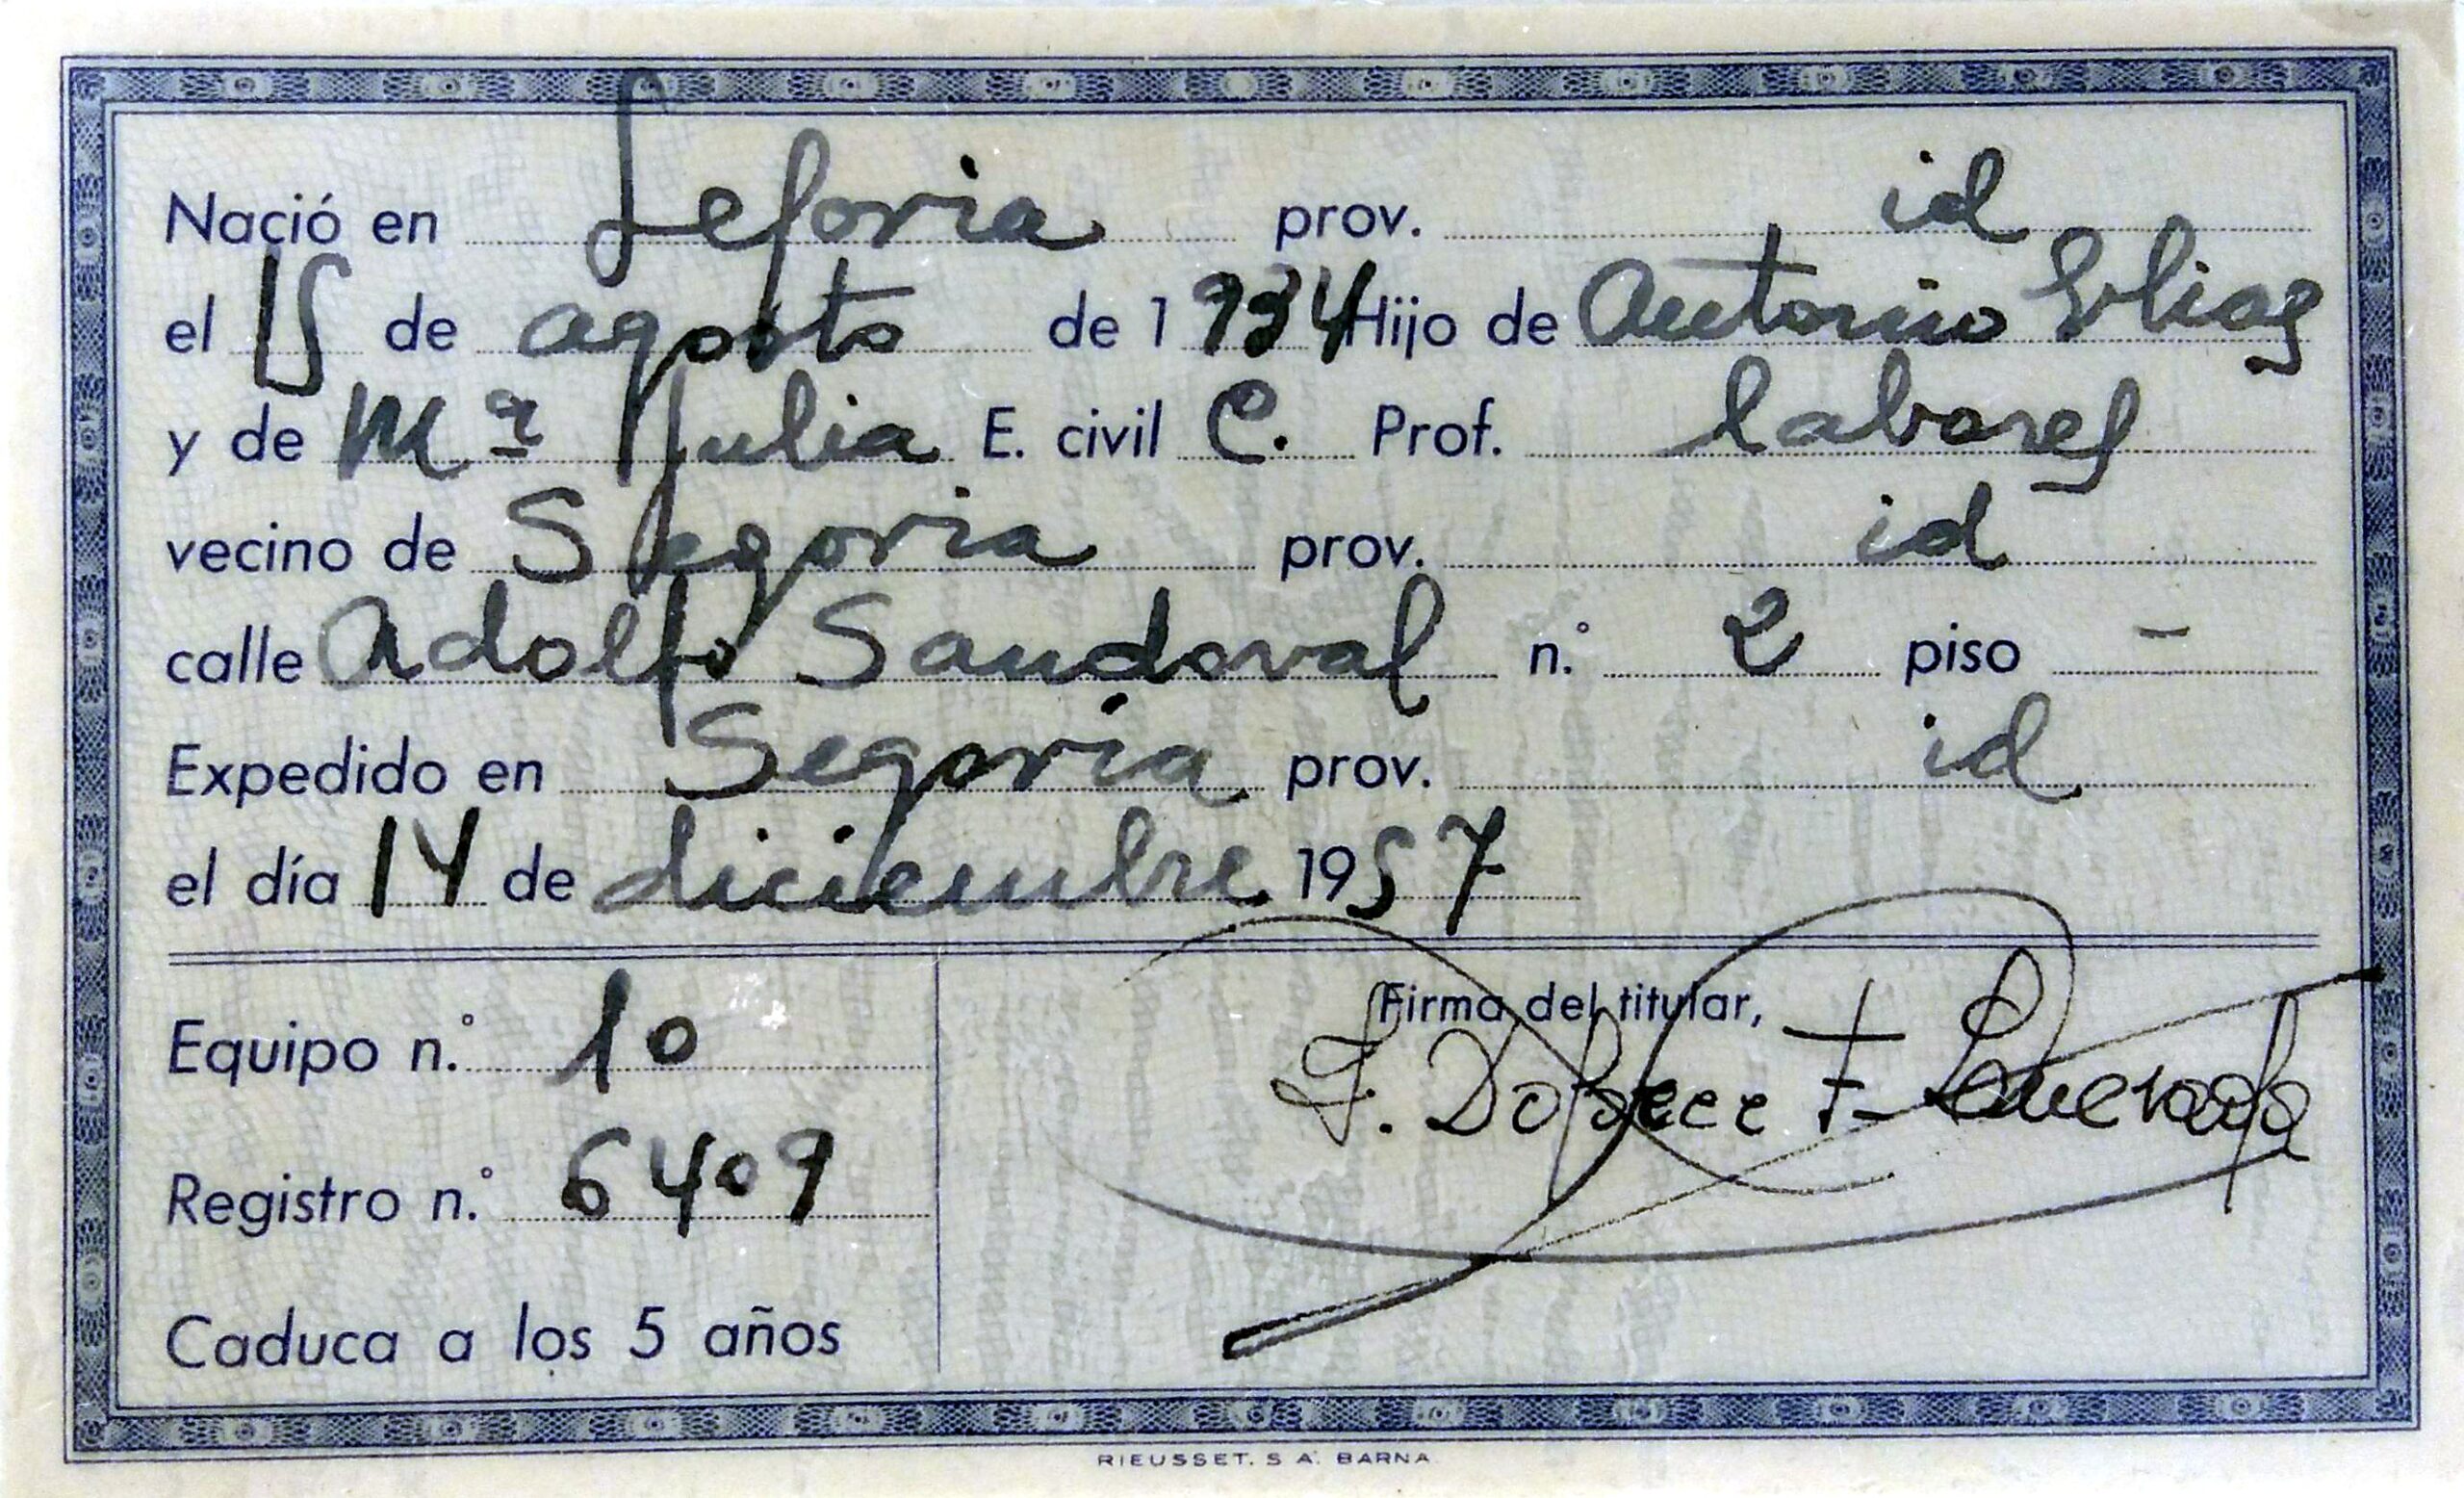 Nació en Segovia prov. id
el 15 de agosto de 1934 Hijo de Antonio Elias
y de Mª Julia E. civil C. Prof. labores
vecino de Segovia prov. id
calle Adolfo Sandoval n.º 2 piso –
Expedido en Segovia prov. id
el día 14 de diciembre 1957
Equipo n.º 10
Registro n.º 6409
Caduca a los 5 años
Firma del titular,
RIEUSSET. S A. BARNA